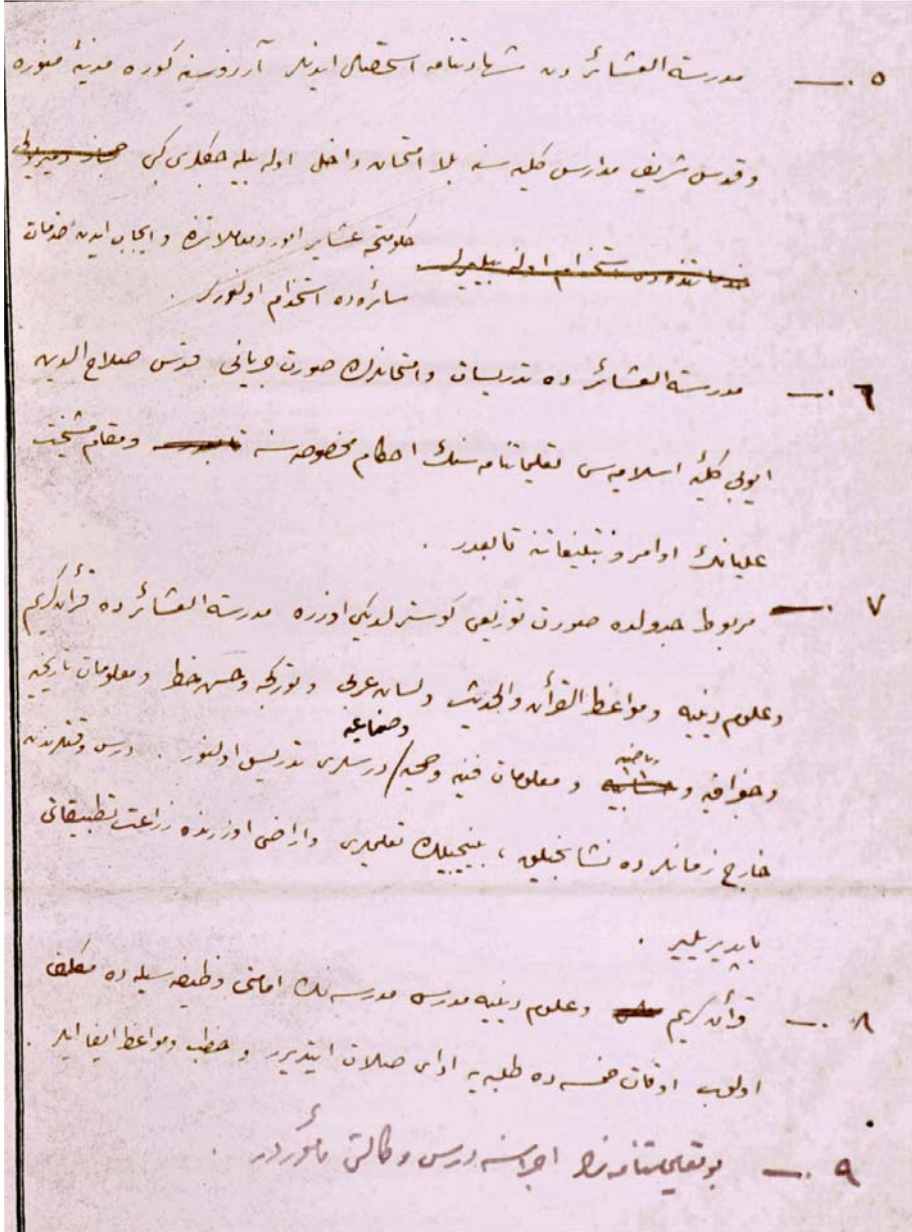 ٥ — مدرسة العشائر دن شهادتنامه استحصال ایدنلر آرزوسنه كوره مدینهٔ منوره
وقدس شریف مدارس كلیه سنه بلا امتحان داخل اوله بیله جكلری كبی
خدماتنده دخی استخدام اوله بیلیرلر حكومتجه عشایر امور ومعاملاتنده و ایجاب ایدن خدمات
سائره ده استخدام اولنورلر .
٦ — مدرسة العشائر ده تدریسات وامتحاننك صورت جریانی قدس صلاح الدین
ایوبی كلیهٔ اسلامیه سی تعلیماتنامه سنك احكام مخصوصه سنه تابعدر ومقام مشیخت
علیانك اوامر و تبلیغاتنه تابعدر .
٧ — مربوط جدولده صورت توزیعی كوسترلدیكی اوزره مدرسة العشائر ده قرآن كریم
وعلوم دینیه ومواعظ القرآن والحدیث ولسان عربی وتوركجه وحسن خط ومعلومات تاریخیه
وجغرافیه و حسابیه ریاضیه و معلومات فنیه وصحیه / وصناعیه درسلری تدریس اولنور . درس وقتلرندن
خارج زمانلرده نشانجیلق ، بینیجیلك تعلیملری واراضی اوزرنده زراعت تطبیقاتی
یاپدیریلیر .
٨ — قرآن كریم وعلوم دینیه مدرسی مدرسه نك امامتی وظیفه سیله ده مكلف
اولوب اوقات خمسه ده طلبه یه ادای صلات ایتدیرر و خطب ومواعظ ایفا ایلر .
٩ — بو تعلیماتنامه نك اجراسنه درس وكالتی مأموردر .